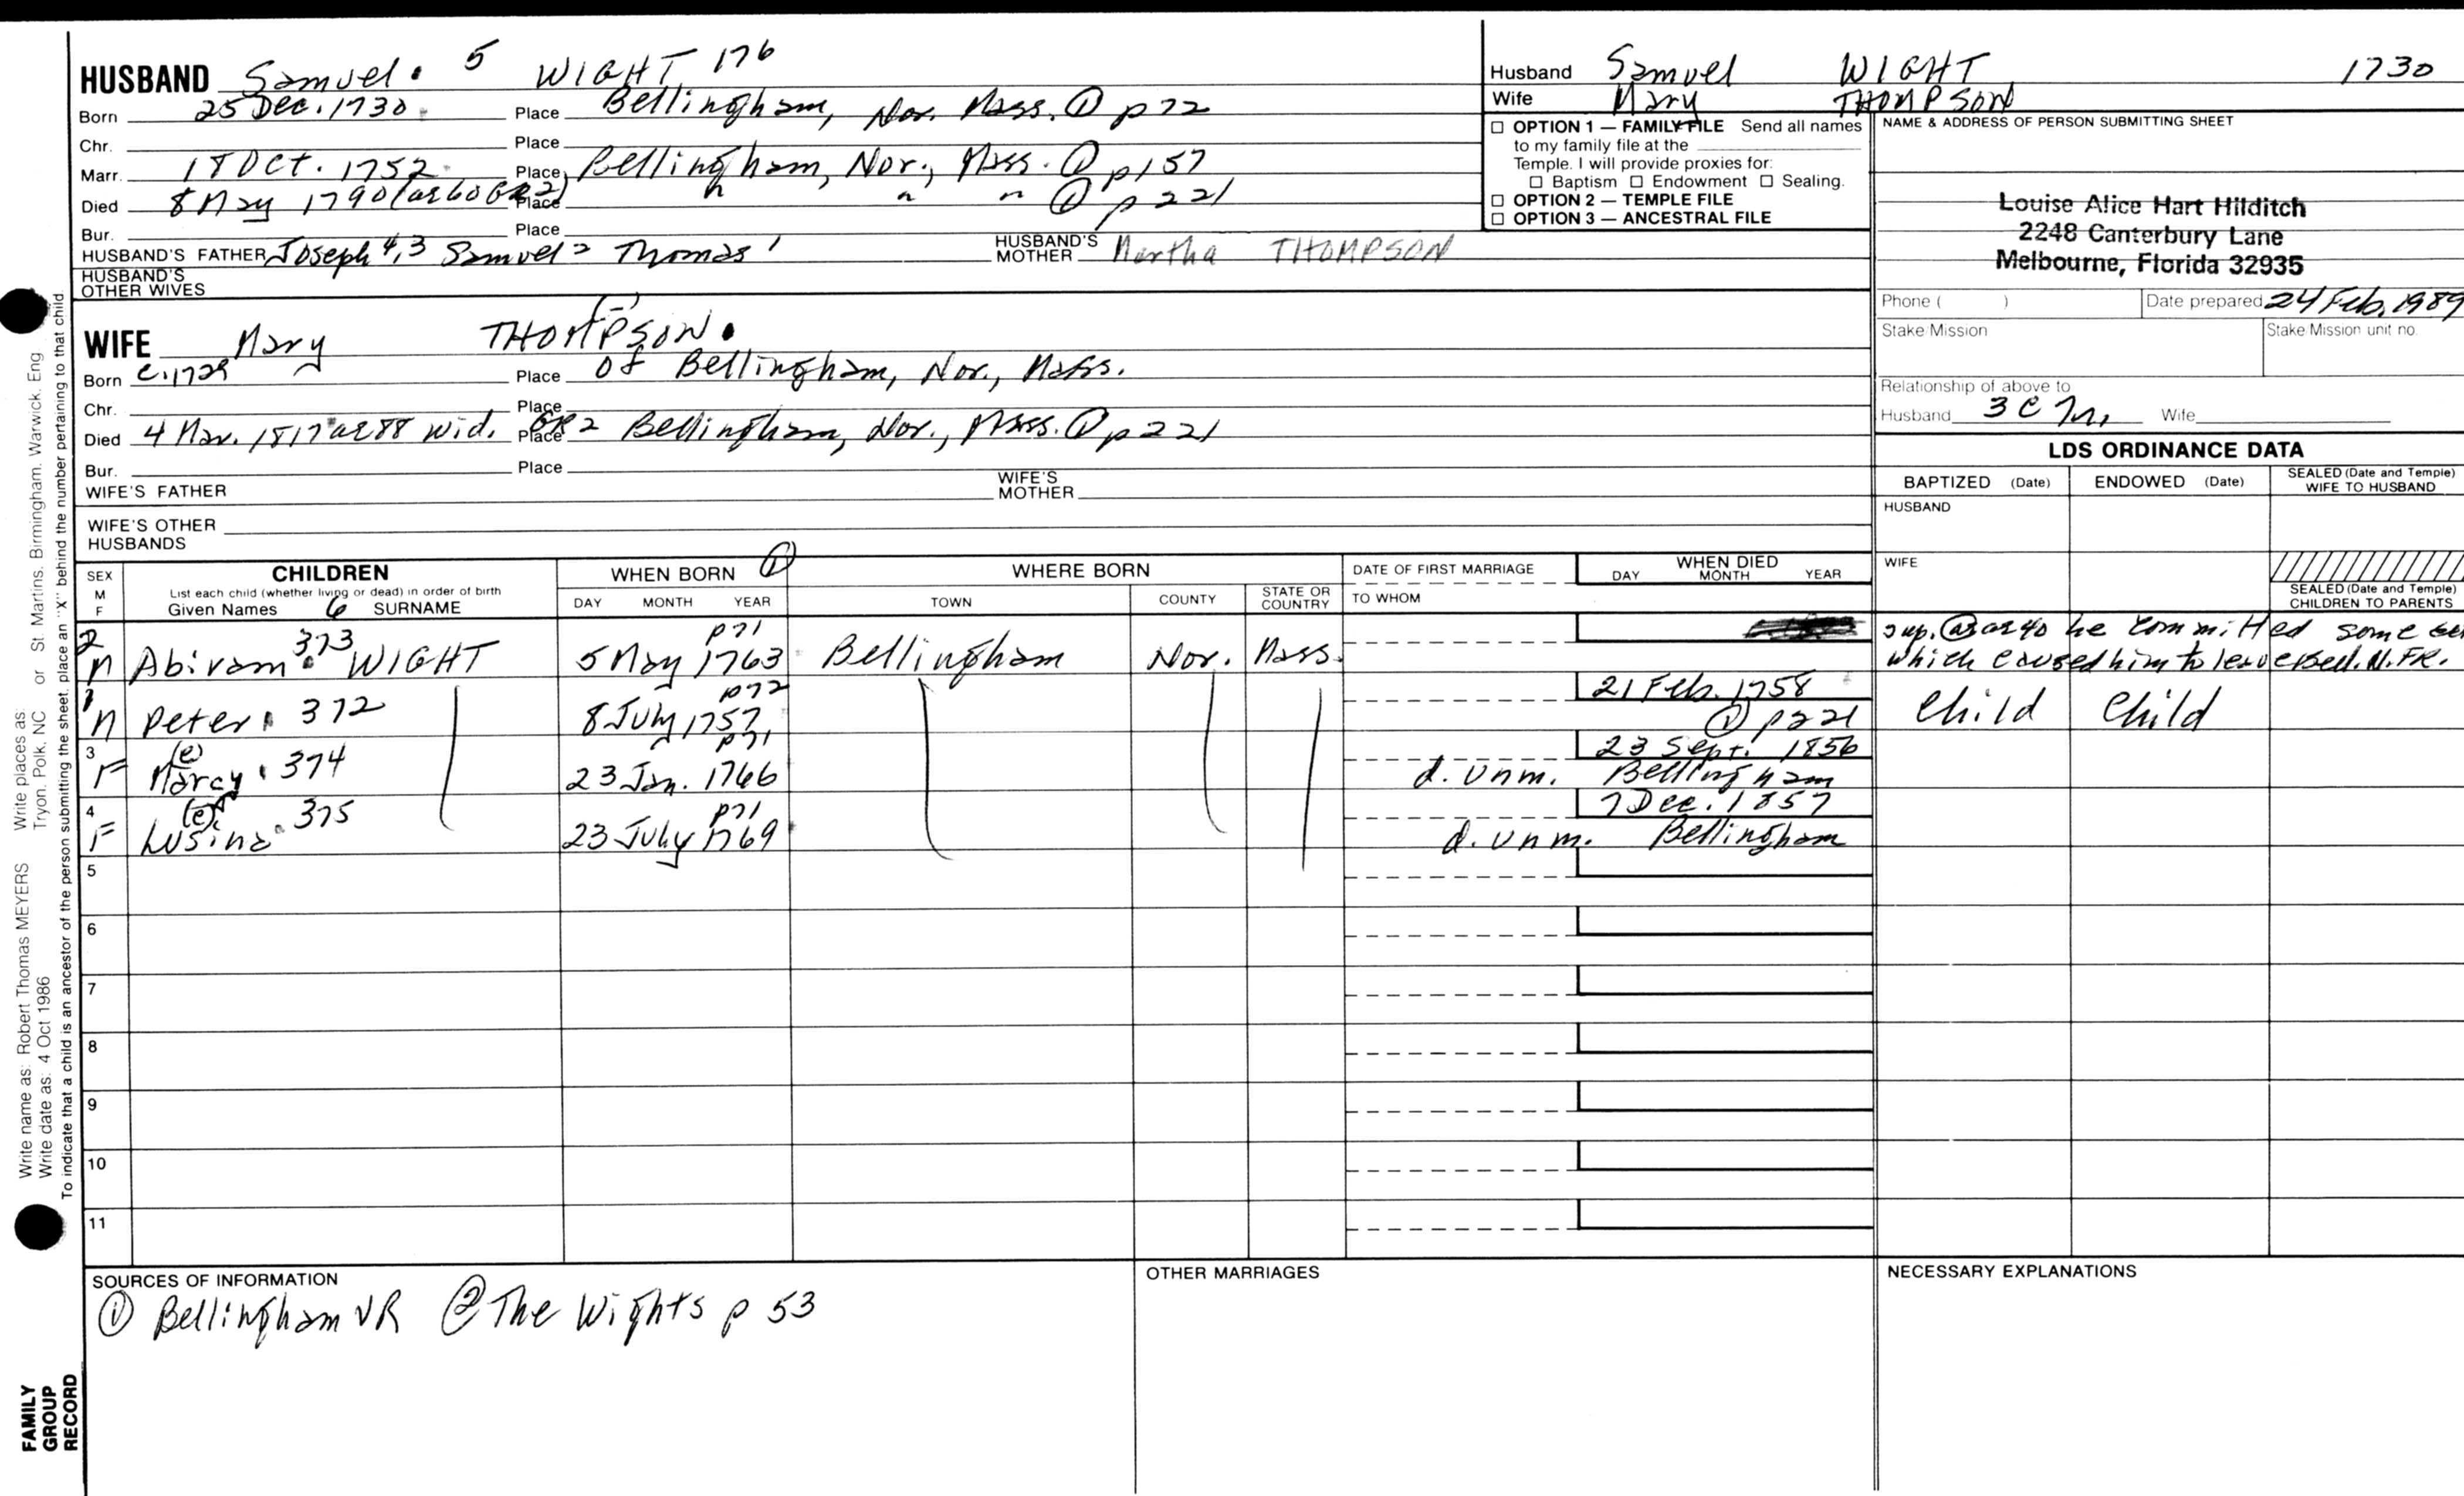 HUSBAND Samuel. 5 WIGHT 176
Born 25 Dec. 1730. Place Bellingham, Nor. Mass. ① p72
Chr. Place
Marr. 18 Oct. 1752. Place Bellingham, Nor., Mass. ① p157
Died 8 May 1790 (ae 60 GR2) Place " " " ① p221
Bur. Place
HUSBAND'S FATHER Joseph 4,3 Samuel 2 Thomas 1 HUSBAND'S MOTHER Martha THOMPSON
HUSBAND'S OTHER WIVES
(-)
WIFE Mary THOMPSON.
Born c.1729 Place of Bellingham, Nor., Mass.
Chr. Place
Died 4 Mar. 1817 ae 88 wid. Place GR2 Bellingham, Nor., Mass. ① p221
Bur. Place
WIFE'S FATHER WIFE'S MOTHER
WIFE'S OTHER HUSBANDS
Husband Samuel WIGHT 1730
Wife Mary THOMPSON
☐ OPTION 1 — FAMILY FILE Send all names
to my family file at the
Temple. I will provide proxies for:
☐ Baptism ☐ Endowment ☐ Sealing.
☐ OPTION 2 — TEMPLE FILE
☐ OPTION 3 — ANCESTRAL FILE
NAME & ADDRESS OF PERSON SUBMITTING SHEET
Louise Alice Hart Hilditch
2248 Canterbury Lane
Melbourne, Florida 32935
Phone ( ) Date prepared 24 Feb. 1989
Stake Mission Stake Mission unit no.
Relationship of above to
Husband 3 C Wife
LDS ORDINANCE DATA
BAPTIZED (Date) ENDOWED (Date) SEALED (Date and Temple) WIFE TO HUSBAND
HUSBAND
WIFE
SEALED (Date and Temple) CHILDREN TO PARENTS
SEX M F
CHILDREN
List each child (whether living or dead) in order of birth
Given Names 6 SURNAME
WHEN BORN ①
DAY MONTH YEAR
WHERE BORN
TOWN COUNTY STATE OR COUNTRY
DATE OF FIRST MARRIAGE
TO WHOM
WHEN DIED
DAY MONTH YEAR
2 M Abiram. 373 WIGHT 5 May 1763 p71 Bellingham Nor. Mass. sup. ae 40 he committed some
which caused him to leave Bell. N.FR.
1 M Peter. 372 8 July 1757 p72 21 Feb. 1758 ① p221 Child Child
3 F Marcy (e) 374 23 Jan. 1766 p71 d. unm. 23 Sept. 1856 Bellingham
4 F Lusina (e) 375 23 July 1769 p71 d. unm. 7 Dec. 1857 Bellingham
5
6
7
8
9
10
11
SOURCES OF INFORMATION
① Bellingham VR ② The Wights p 53
OTHER MARRIAGES
NECESSARY EXPLANATIONS
Write name as: Robert Thomas MEYERS Write places as: Tryon, Polk, NC or St. Martins, Birmingham, Warwick, Eng
Write date as: 4 Oct 1986
To indicate that a child is an ancestor of the person submitting the sheet, place an "X" behind the number pertaining to that child.
FAMILY
GROUP
RECORD